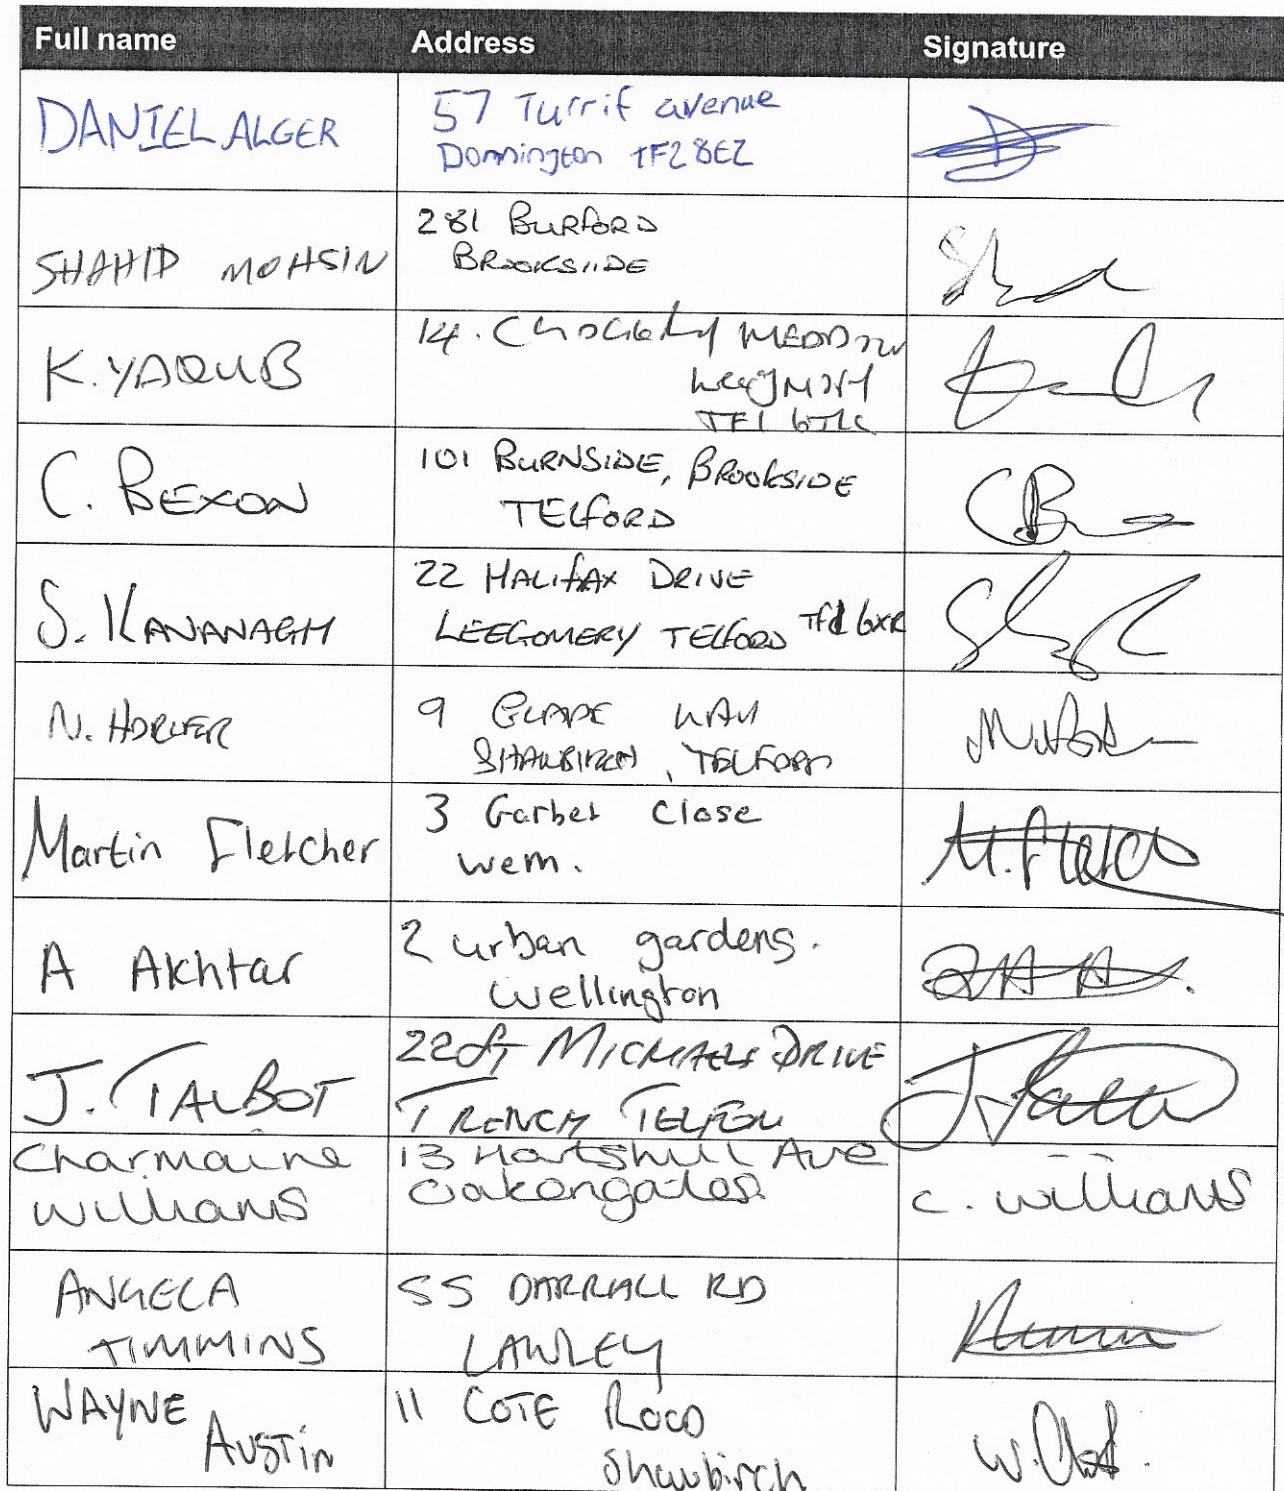 Full name Address Signature
DANIEL ALGER 57 Turrif avenue
Donnington TF2 8EZ
SHAHID MOHSIN 281 BURFORD
BROOKSIIDE
K. YAQUB 14. MEADOW
TF1
C. BEXON 101 BURNSIDE, BROOKSIDE
TELFORD
S. KAVANAGH 22 HALIFAX DRIVE
LEEGOMERY TELFORD TF1 6XR
N. 9 WAY
SHAWBIRCH, TELFORD
Martin Fletcher 3 Garbet Close M. Fletch
wem.
A Akhtar 2 urban gardens.
wellington
J. TALBOT 22 ST MICHAELS DRIVE
TRENCH TELFORD
Charmaine 13 Hartshill Ave
williams oakengates. c. williams
ANGELA 55 DARRALL RD
TIMMINS LAWLEY
WAYNE 11 COTE ROAD
AUSTIN Shawbirch